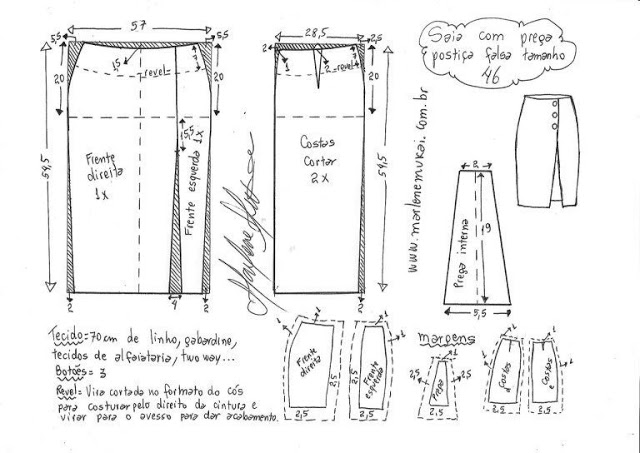 Saia com prega
postiça falsa tamanho
46
57
5,5
5,5
20
20
1,5
revel
7
54,5
5,5
Frente
direita
1x
Frente esquerda 1x
2
4
2
28,5
2,5
2
1
2
revel
3
20
Costas
cortar
2x
54,5
2
www.marlenemukai.com.br
2
Prega interna
19
5,5
Tecido=70cm de linho, gabardine,
tecidos de alfaiataria, two way...
Botões=3
Revel= Vira cortada no formato do cós
para costurar pelo direito da cintura e
virar para o avesso para dar acabamento.
margens
1
1
Frente
direita
2,5
2,5
1
1
Frente
esquerda
2,5
2,5
1
2,5
Prega
2,5
2,5
1
1
Costas
d
2,5
1
1
Costas
e
2,5